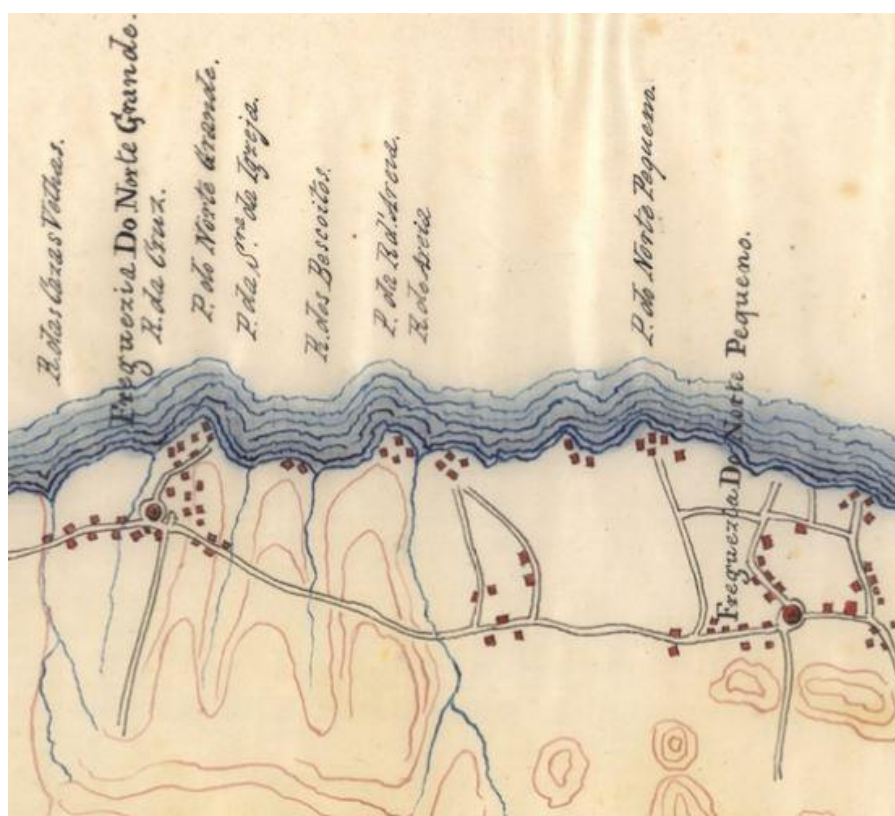 R. das Cazas Velhas.
Freguezia Do Norte Grande.
R. da Cruz.
P. do Norte Grande.
P. da Srª. da Igreja.
R. dos Bescoitos.
P. da R. d'Areia.
R. do Areia
P. do Norte Pequeno.
Freguezia Do Norte Pequeno.